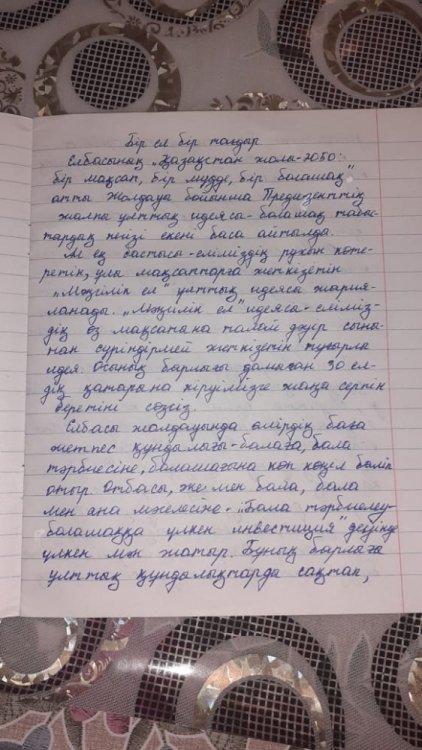 Бір ел бір тағдыр
Елбасының „Қазақстан жолы-2050:
бір мақсат, бір мүдде, бір болашақ"
атты Жолдауы бойынша Президенттің
жалпы ұлттық идеясы-болашақ табыс-
тардың негізі екені баса айтылды.
Ал ең бастысы-еліміздің рухын көте-
ретін, ұлы мақсаттарға жеткізетін
„Мәңгілік ел" ұлттық идеясы жария-
ланады. „Мәңгілік ел" идеясы-еліміз-
дің өз мақсатына талай дәуір сыны-
нан сүріндірмей жеткізетін тұғырлы
идея. Осының барлығы дамыған 30 ел-
дің қатарына кіруімізге жаңа серпін
беретіні сөзсіз.
Елбасы жолдауында өмірдің баға
жетпес құндылығы-балаға, бала
тәрбиесіне, болашағына көп көңіл бөліп
отыр. Отбасы, әке мен бала, бала
мен ана мәселесіне-„Бала тәрбиелеу-
болашаққа үлкен инвестиция" деуінде
үлкен мән жатыр. Бұның барлығы
ұлттық құндылықтарды сақтап,